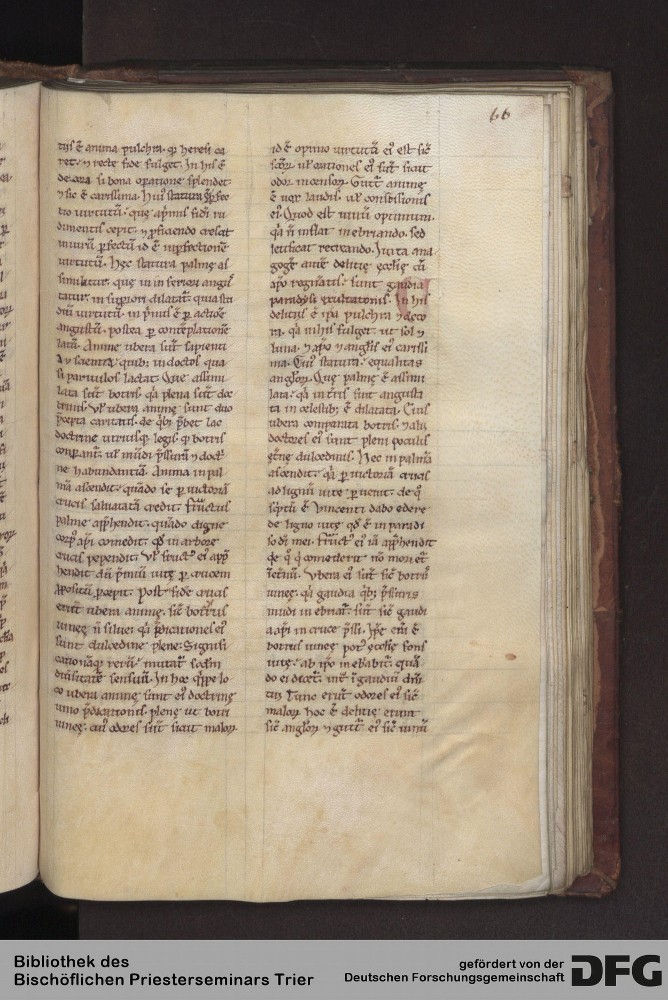 66
tiis ē anima pulchra. qr̄ heresi ca
ret. ⁊ recte fide fulget. In his ē
decora. si bona operatione splendet.
⁊ sic ē carissima. Hui' statura ē ꝑfec
tio uirtutū. que a primis fidei ru
dimentis cepit. ⁊ ꝓficiendo crescat
in uirū ꝑfectū id ē in ꝑfectionē
uirtutū. Hęc statura palme as
similatur. que in inferiori angus
tatur. in supiori dilatat̄. quia stu
diū uirtutū. in primis ē ꝑ actionē
angustū. postea ꝑ contēplationē
latū. Anime ubera sunt sapienti
a ⁊ scientia. quib; indoctos qua
si paruulos lactat. Que assimi
lata sunt botris. qa plena sunt doc
trinis. Vl' ubera animę sunt duo
p̄cepta caritatis. de qb; p̄bet lac
doctrine utriusq; legis. q̄ botris
conparant̄. ul' mūdi p̄ssurā ⁊ doct̄
ne habundantiā. Anima in pal
mā ascendit. quando se ꝑ uictoriā
crucis saluatam credit. Fructus
palme app̄hendit. quando digne
corp' xp̄i comedit. qd̄ in arbore
crucis pependit. Vl' fruct' ei' app̄
hendit dū p̄miū uitę ꝑ crucem
ꝓpositū ꝑcepit. Post fidē crucis
erūt ubera animę. sic̄ botrus
uineę n̄ siluę. qa p̄dicationes ei'
sunt dulcedine plene. Signifi
cationūq; rerū. mutat̄ scdm̄
diuersitatē sensuū. In hoc q̄ppe lo
co ubera animę sunt ei' doctrinę
uino p̄dicationis. plenę ut botri
uineę. cui' odores sūt sicut malorꝝ
id ē opinio uirtutū ei' est sic̄
scōrꝝ ul' orationes ei' sunt sicut
odor incensorꝝ. Guttur animę
ē uox laudis. ul' confessionis
ei'. Quod est uinū optimum.
qa n̄ inflat inebriando. sed
letificat recreando. Iuxta ana
gogē autē delitię ecclię cū
xp̄o regnantis. sunt gaudia
paradysi exultationis. In his
delitiis ē ipa pulchra ⁊ deco
ra. qa in his fulget. ut sol ⁊
luna. ⁊ xp̄o ⁊ anglis ei' carissi
ma. Cui' statura. equalitas
anglorꝝ. Que palme ē assimi
lata. qa in tris sunt angusta
ta in celestib; ē dilatata. Cuius
ubera comparata botris. ⁊ alii
doctores ei' sunt pleni poculis
et̄ne dulcedinis. Hęc in palmā
ascendit. qa ꝑ uictoriā crucis
ad lignū uite ꝑuenit. de q̄
sc̄ptū ē Vincenti dabo edere
de ligno uitę qd̄ ē in paradi
so dī mei. Fruct' ei' iā app̄hendit
de q̄ q̄ comederit nō morietur
in et̄nū. Vbera ei' sūt sic̄ botrus
uineę. qa gaudia qb; p̄ssuris
mūdi inebriat̄. sūt sic̄ gaudi
a xp̄i in cruce p̄ssi. Ip̄e eni ē
botrus uineę. port' ecclię fons
uite. ab ipo inebriabit̄. quā
do ei dicet̄. intra ī gaudiū dn̄i
tui. Tunc erūt odores ei' sic̄
malorꝝ hoc ē delitię erunt
sic̄ anglorꝝ ⁊ guttur ei' sic̄ uinū
Bibliothek des
Bischöflichen Priesterseminars Trier
gefördert von der
Deutschen Forschungsgemeinschaft
DFG